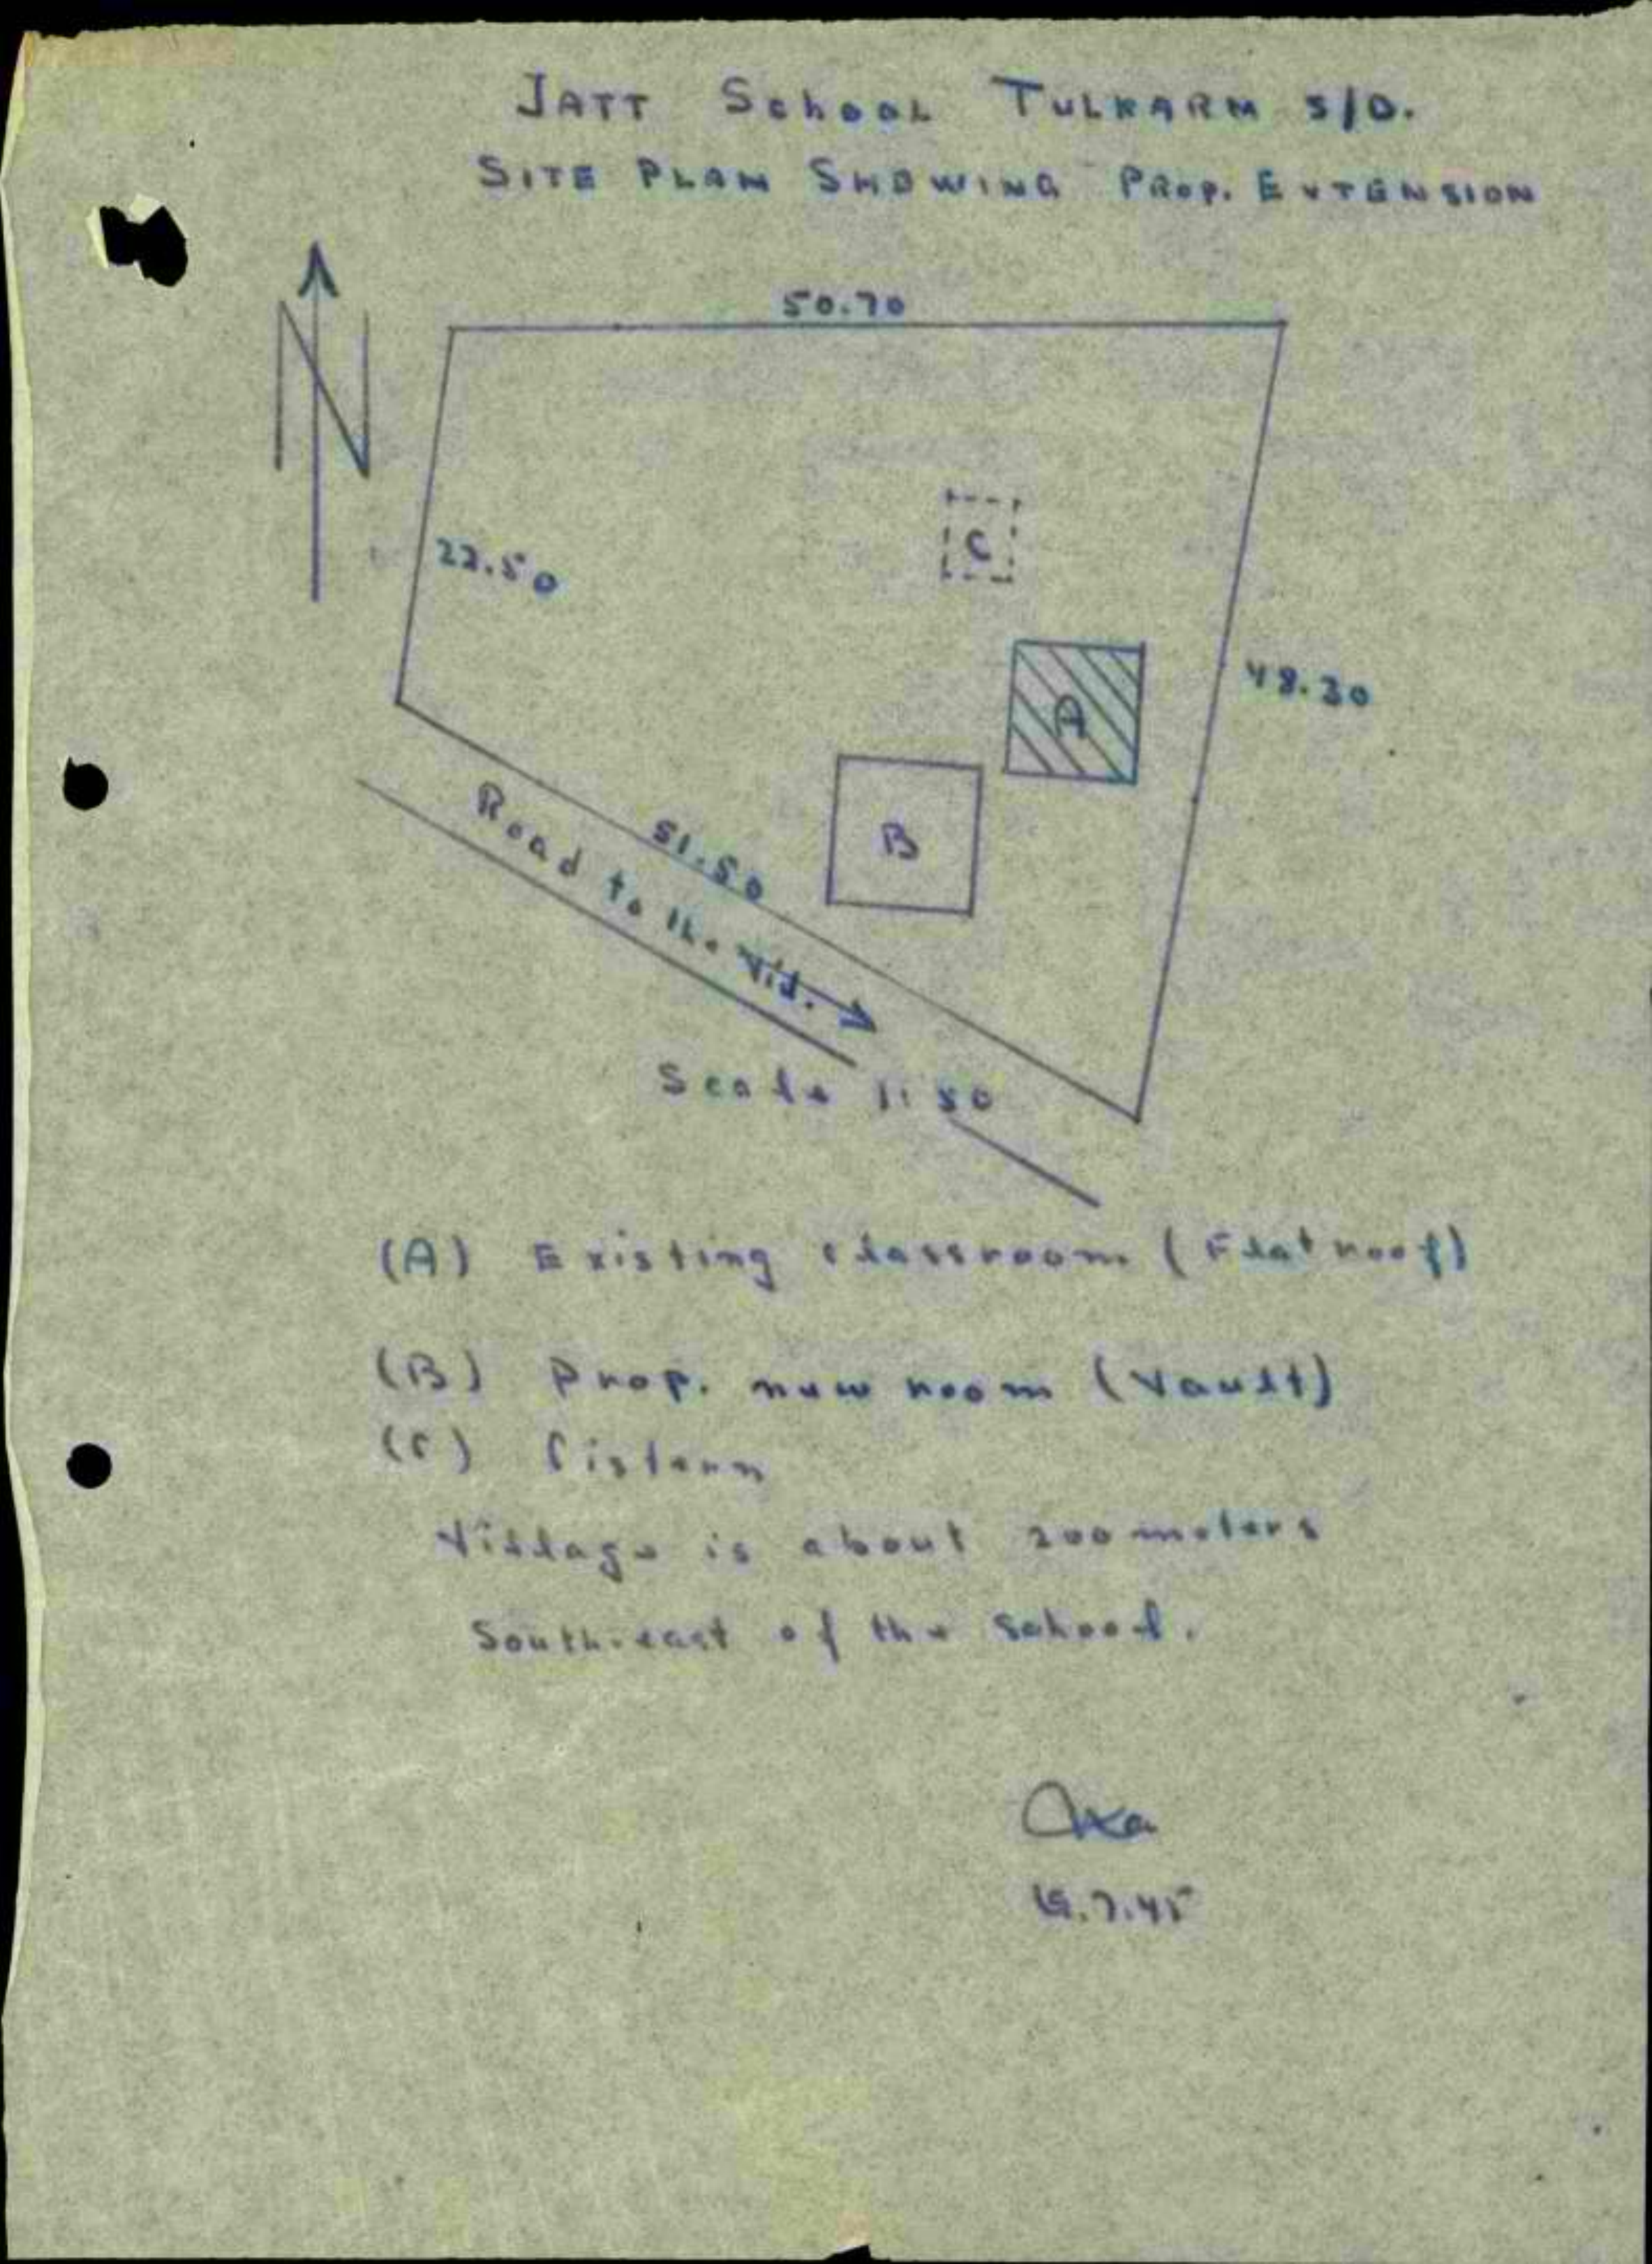 JATT School TULKARM S/D.
SITE PLAN SHOWING PROP. EXTENSION
N
50.70
22.50
C
48.30
A
B
51.50
Road to the Vil.
Scale 1:50
(A) Existing classroom (Flat roof)
(B) Prop. new room (Vault)
(C) Cistern
Village is about 200 meters
South-east of the school.
.7.45